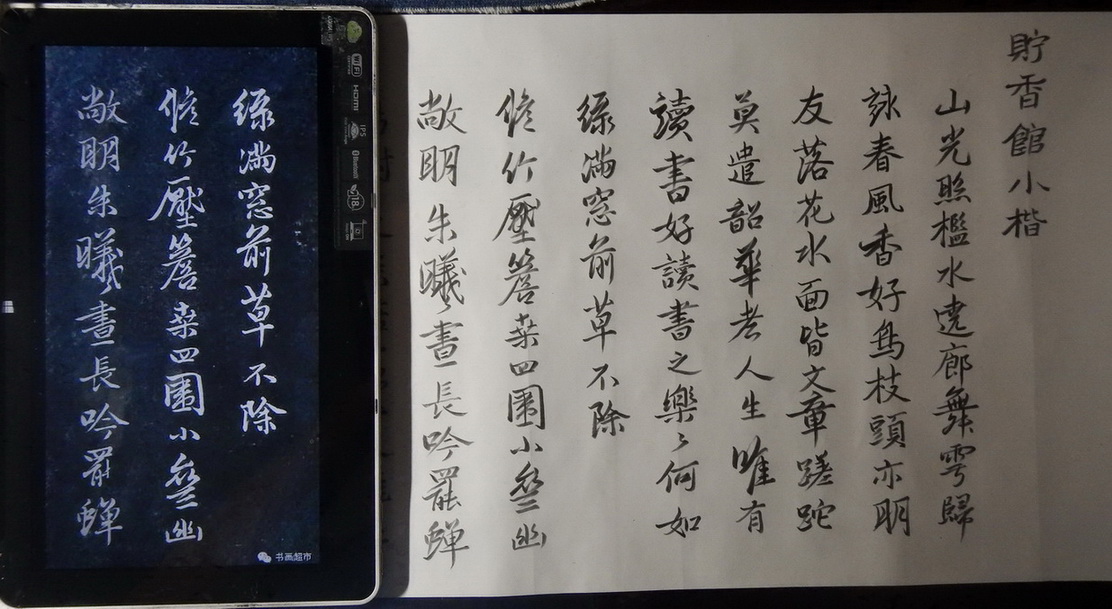 貯香館小楷
山光照檻水遶廊舞雩歸
詠春風香好鳥枝頭亦朋
友落花水面皆文章蹉跎
莫遣韶華老人生唯有
讀書好讀書之樂〻何如
綠滿窓前草不除
脩竹壓簷桑四圍小齋幽
敞眀朱曦晝長吟罷蟬
綠滿窓前草不除
脩竹壓簷桑四圍小齋幽
敞眀朱曦晝長吟罷蟬
书画超市
WiFi
HDMI
IPS
Bluetooth